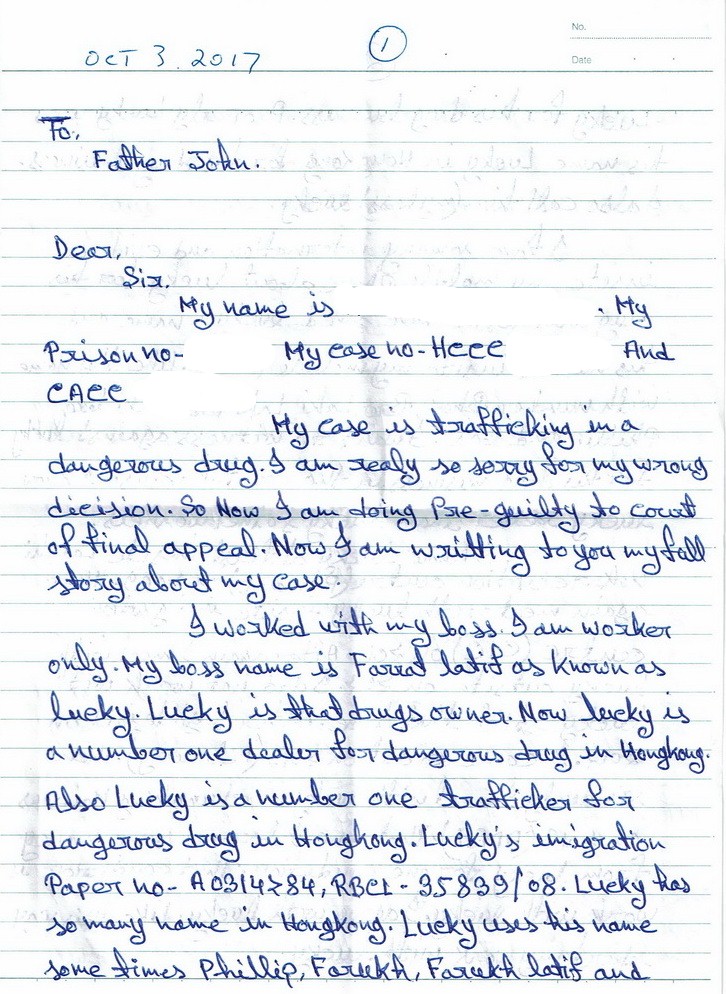 No.
OCT 3. 2017
1
Date
To,
Father John.
Dear,
Sir.
My name is . My
Prison no- My case no- HCCC And
CACC
My case is trafficking in a
dangerous drug. I am realy so sorry for my wrong
decision. So Now I am doing Pre-guilty to court
of final appeal. Now I am writting to you my full
story about my case.
I worked with my boss. I am worker
only. My boss name is Farrat latif as known as
lucky. Lucky is that drugs owner. Now lucky is
a number one dealer for dangerous drug in Hongkong.
Also Lucky is a number one trafficker for
dangerous drug in Hongkong. Lucky's imigration
Paper no- A0314784, RBCL - 35839/08. Lucky has
so many name in Hongkong. Lucky uses his name
some times Phillip, Farukh, Farukh latif and